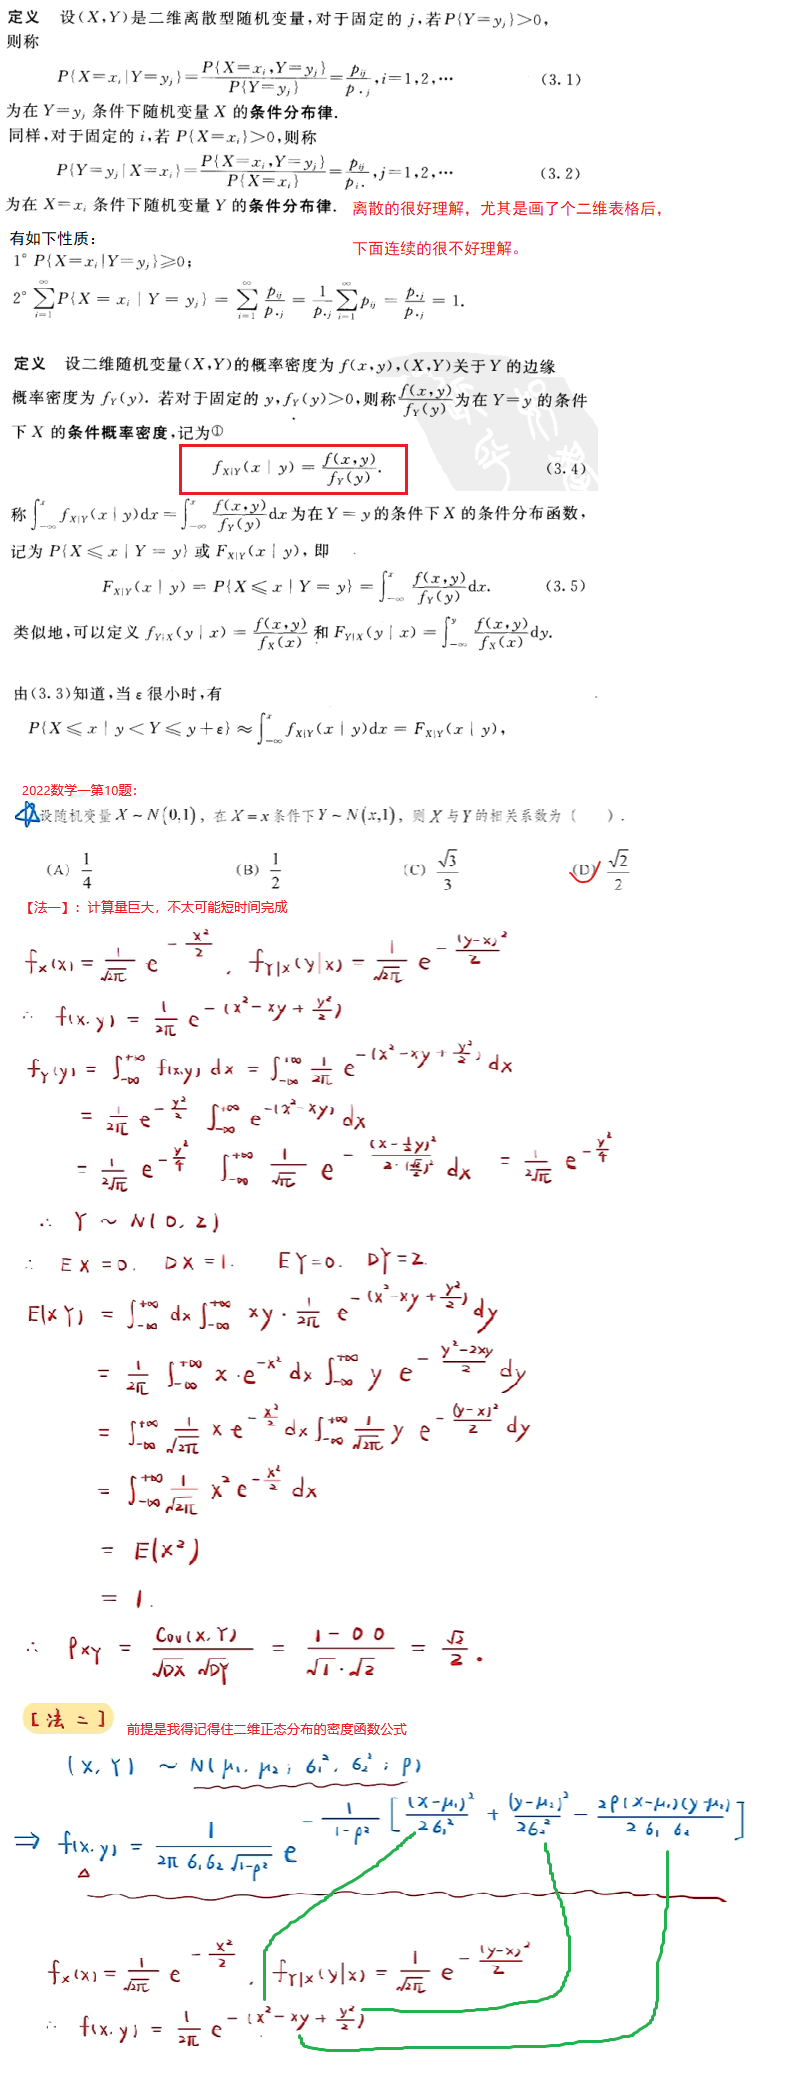 定义 设(X,Y)是二维离散型随机变量,对于固定的 j,若P{Y=yⱼ}>0,
则称
P{X=xᵢ|Y=yⱼ}=P{X=xᵢ,Y=yⱼ}/P{Y=yⱼ}=pᵢⱼ/p.ⱼ,i=1,2,⋯ (3.1)
为在 Y=yⱼ 条件下随机变量 X 的条件分布律.
同样,对于固定的 i,若 P{X=xᵢ}>0,则称
P{Y=yⱼ|X=xᵢ}=P{X=xᵢ,Y=yⱼ}/P{X=xᵢ}=pᵢⱼ/pᵢ.,j=1,2,⋯ (3.2)
为在 X=xᵢ 条件下随机变量 Y 的条件分布律. 离散的很好理解，尤其是画了个二维表格后，
下面连续的很不好理解。
有如下性质：
1° P{X=xᵢ|Y=yⱼ}≥0;
2° ∑_{i=1}^{∞} P{X = xᵢ | Y = yⱼ} = ∑_{i=1}^{∞} pᵢⱼ/p.ⱼ = 1/p.ⱼ ∑_{i=1}^{∞} pᵢⱼ = p.ⱼ/p.ⱼ = 1.
定义 设二维随机变量(X,Y)的概率密度为 f(x,y),(X,Y)关于 Y 的边缘
概率密度为 f_Y(y). 若对于固定的 y,f_Y(y)>0,则称 f(x,y)/f_Y(y) 为在 Y=y 的条件
下 X 的条件概率密度,记为①
f_{X|Y}(x | y) = f(x,y)/f_Y(y). (3.4)
称∫_{-∞}^{x} f_{X|Y}(x | y)dx = ∫_{-∞}^{x} f(x,y)/f_Y(y) dx 为在 Y = y 的条件下 X 的条件分布函数,
记为 P{X ≤ x | Y = y} 或 F_{X|Y}(x | y), 即
F_{X|Y}(x | y) = P{X ≤ x | Y = y} = ∫_{-∞}^{x} f(x,y)/f_Y(y) dx. (3.5)
类似地,可以定义 f_{Y|X}(y | x) = f(x,y)/f_X(x) 和 F_{Y|X}(y | x) = ∫_{-∞}^{y} f(x,y)/f_X(x) dy.
由(3.3)知道,当 ε 很小时,有
P{X ≤ x | y < Y ≤ y+ε} ≈ ∫_{-∞}^{x} f_{X|Y}(x | y)dx = F_{X|Y}(x | y),
2022数学一第10题：
设随机变量 X ~ N(0,1)，在 X = x 条件下 Y ~ N(x,1)，则 X 与 Y 的相关系数为（ ）.
(A) 1/4 (B) 1/2 (C) √3/3 (D) √2/2
【法一】：计算量巨大，不太可能短时间完成
f_X(x) = 1/√2π e^{-x²/2}, f_{Y|X}(y|x) = 1/√2π e^{-(y-x)²/2}
∴ f(x.y) = 1/2π e^{-(x²-xy+y²/2)}
f_Y(y) = ∫_{-∞}^{+∞} f(x.y) dx = ∫_{-∞}^{+∞} 1/2π e^{-(x²-xy+y²/2)} dx
= 1/2π e^{-y²/2} ∫_{-∞}^{+∞} e^{-(x²-xy)} dx
= 1/2√π e^{-y²/4} ∫_{-∞}^{+∞} 1/√π e^{-(x-½y)²/2·(√2/2)²} dx = 1/2√π e^{-y²/4}
∴ Y ~ N(0,2)
∴ EX=0. DX=1. EY=0. DY=2.
E(XY) = ∫_{-∞}^{+∞} dx ∫_{-∞}^{+∞} xy · 1/2π e^{-(x²-xy+y²/2)} dy
= 1/2π ∫_{-∞}^{+∞} x·e^{-x²} dx ∫_{-∞}^{+∞} y e^{-(y²-2xy)/2} dy
= ∫_{-∞}^{+∞} 1/√2π x e^{-x²/2} dx ∫_{-∞}^{+∞} 1/√2π y e^{-(y-x)²/2} dy
= ∫_{-∞}^{+∞} 1/√2π x² e^{-x²/2} dx
= E(X²)
= 1.
∴ ρ_XY = Cov(X,Y)/√DX √DY = 1-0·0/√1·√2 = √2/2.
[法二] 前提是我得记得住二维正态分布的密度函数公式
(X,Y) ~ N(μ₁, μ₂; σ₁², σ₂²; ρ)
⇒ f(x.y) = 1/2πσ₁σ₂√1-ρ² e^{-1/1-ρ² [(x-μ₁)²/2σ₁² + (y-μ₂)²/2σ₂² - 2ρ(x-μ₁)(y-μ₂)/2σ₁σ₂]}
f_X(x) = 1/√2π e^{-x²/2}, f_{Y|X}(y|x) = 1/√2π e^{-(y-x)²/2}
∴ f(x.y) = 1/2π e^{-(x²-xy+y²/2)}